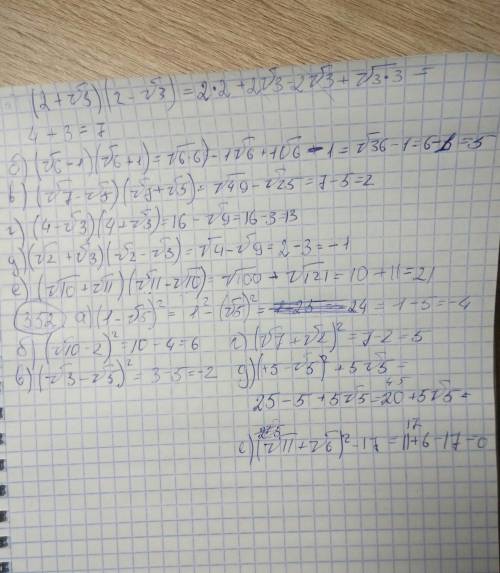 (2+√3)(2-√3)=2·2+2√3-2√3+√3·3=
4+3=7
б)(√6-1)(√6+1)=√6·6)-1√6+1√6-1=√36-1=6-1=5
в)(√7-√5)(√7+√5)=√49-√25=7-5=2
г)(4-√3)(4+√3)=16-√9=16-3=13
д)(√2+√3)(√2-√3)=√4-√9=2-3=-1
е)(√10+√11)(√11-√10)=√100+√121=10+11=21
352 а)(1-√5)²=1²-(√5)²=1-25=-24=1-5=-4
б)(√10-2)²=10-4=6 г)(√7+√2)²=7-2=5
в)(-√3-√5)²=3-5=-2 д)(+5-√5)²+5√5=
25-5+5√5=20+5√5=
е)(√11+√6)²-17=11+6-17=0